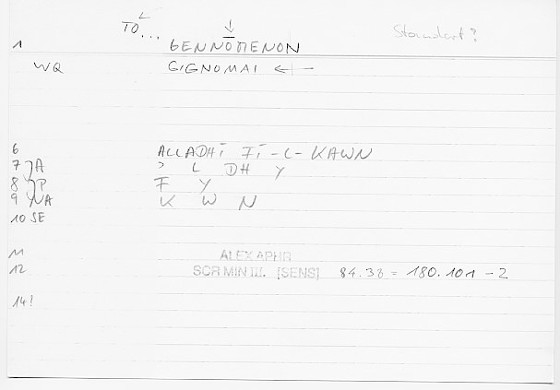 TO L ... ↓ Standort?
1 GENNŌMENON
WQ GIGNOMAI ← | —
6 ALLADHĪ FĪ-L-KAWN
7 } A > L DH Y
8 } P F Y
9 } NA K W N
10 SE
11 ALEX APHR
12 SCR MIN III. [SENS] 84.33 = 180.101 - 2
14!